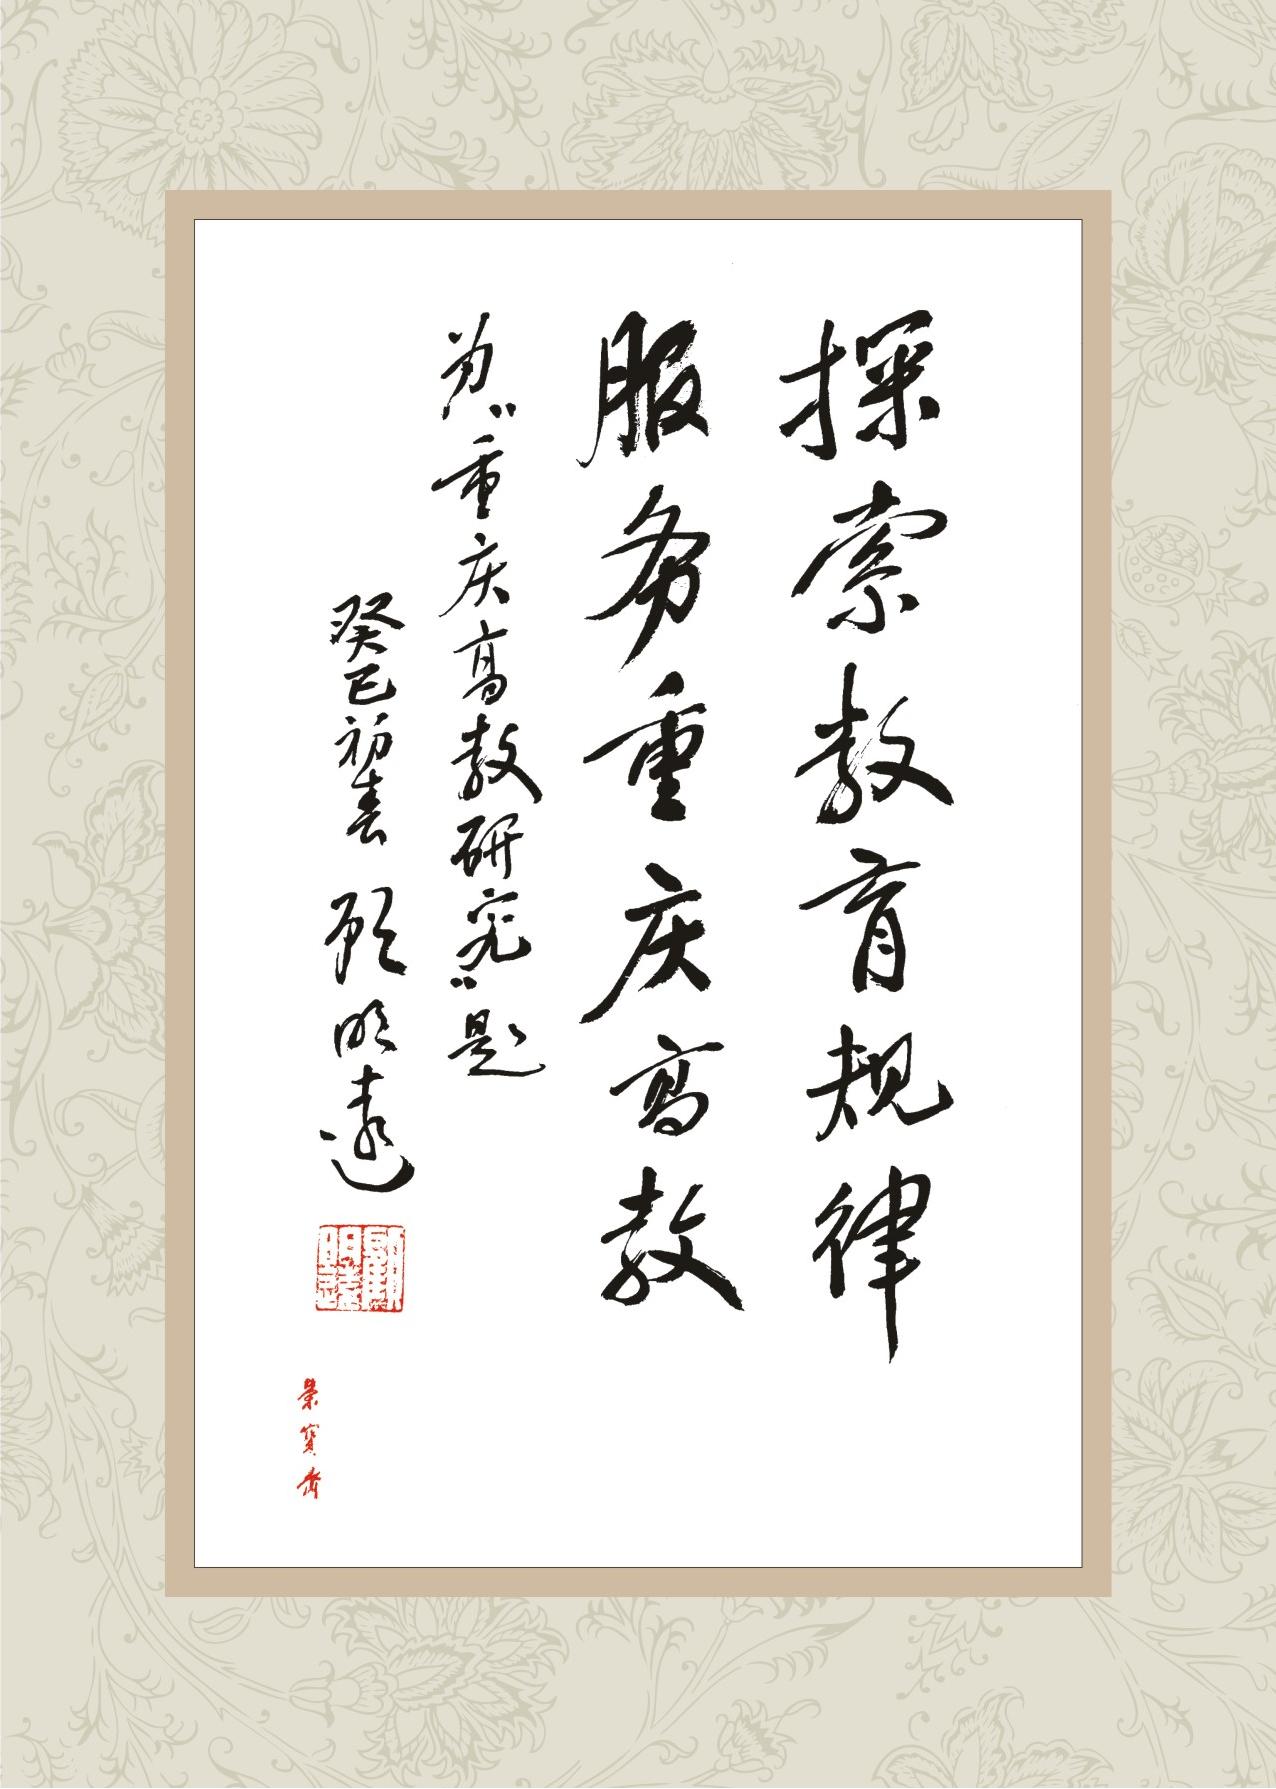 探索教育规律
服务重庆高教
为“重庆高教研究”题
癸巳初春 顾明远
顧明遠
榮寳齋